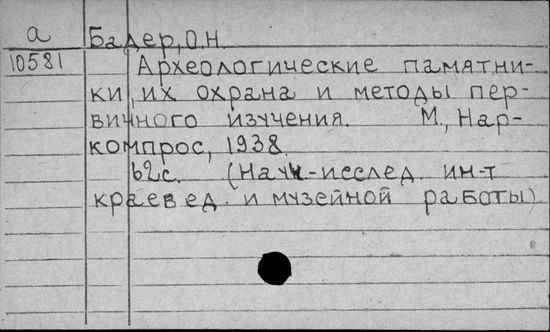 а
Бадер, О.Н.
10581
Археологические памятни-
ки, их охрана и методы пер-
вичного изучения. М., Нар-
компрос, 1938.
62с. (Науч-исслед. ин-т
краевед. и музейной работы)